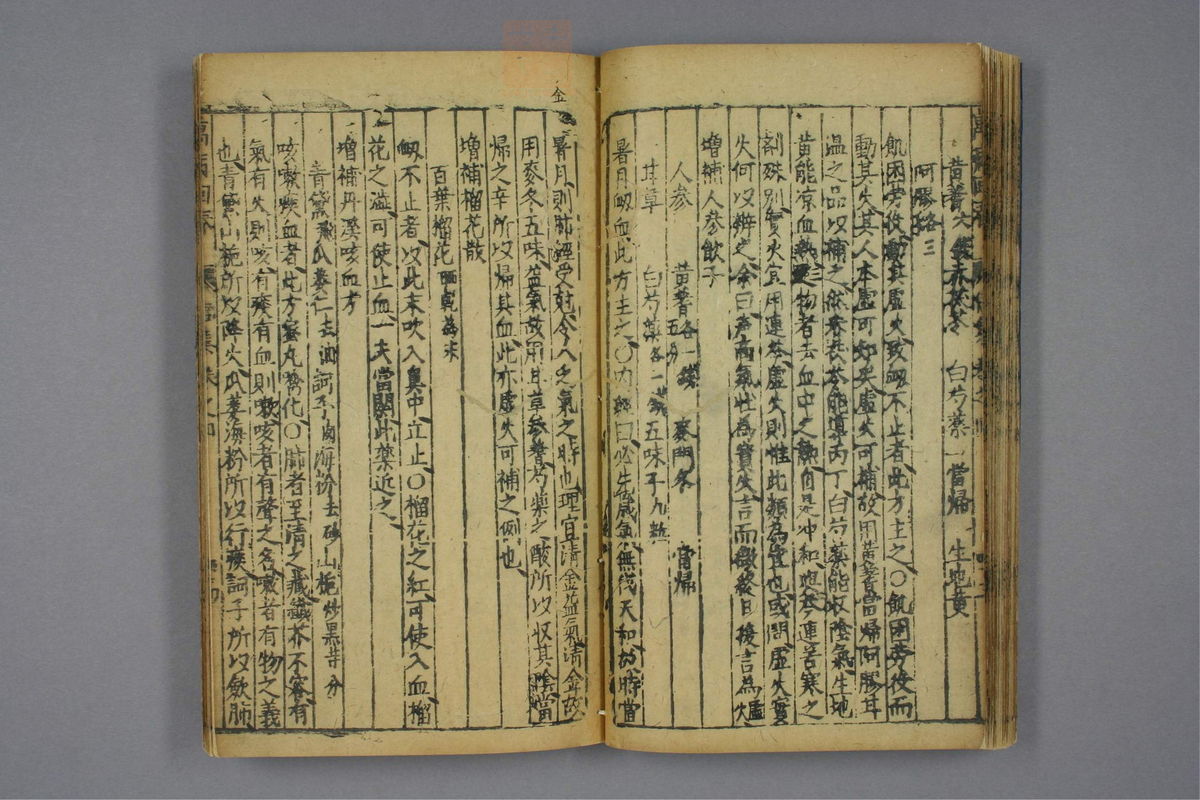 黄耆 赤茯苓 白芍藥 當歸 生地黄
阿膠各三
飢困勞役動其虛火致衂不止者此方主之○飢困勞役而
動其火其人本虛可知矣虛火可補故用黄耆當歸阿膠甘
温之品以補之然赤茯苓能導丙丁白芍藥能收陰氣生地
黄能凉血熱三物者去血中之熱自是冲和與芩連苦寒之
劑殊別實火宜用連芩虛火則惟此類為宜也或問虛火實
火何以辨之余曰声高氣壯為實火言而微終日後言為虛火
增補人參飲子
人參 黄耆各一錢五分 麥門冬 當歸
甘草 白芍藥各一錢 五味子九粒
暑月衂血此方主之○内經曰必先歲氣無伐天和故時當
暑月則肺經受尅令人乏氣之時也理宜清金益氣清金故
用麥冬五味益氣故用甘草參耆芍藥之酸所以收其陰當
歸之辛所以歸其血此亦虛火可補之例也
增補榴花散
百葉榴花晒乾為末
衂不止者以此末吹入鼻中立止○榴花之紅可使入血榴
花之澁可使止血一夫當關此藥近之
增補丹溪咳血方
青黛 瓜蔞仁去油 訶子 海粉去砂 山梔炒黑等分
咳嗽痰血者此方蜜丸噙化○肺者至清之臟纖芥不容有
氣有火則咳有痰有血則嗽咳者有聲之名嗽者有物之義
也青黛山梔所以降火瓜蔞海粉所以行痰訶子所以歛肺
金